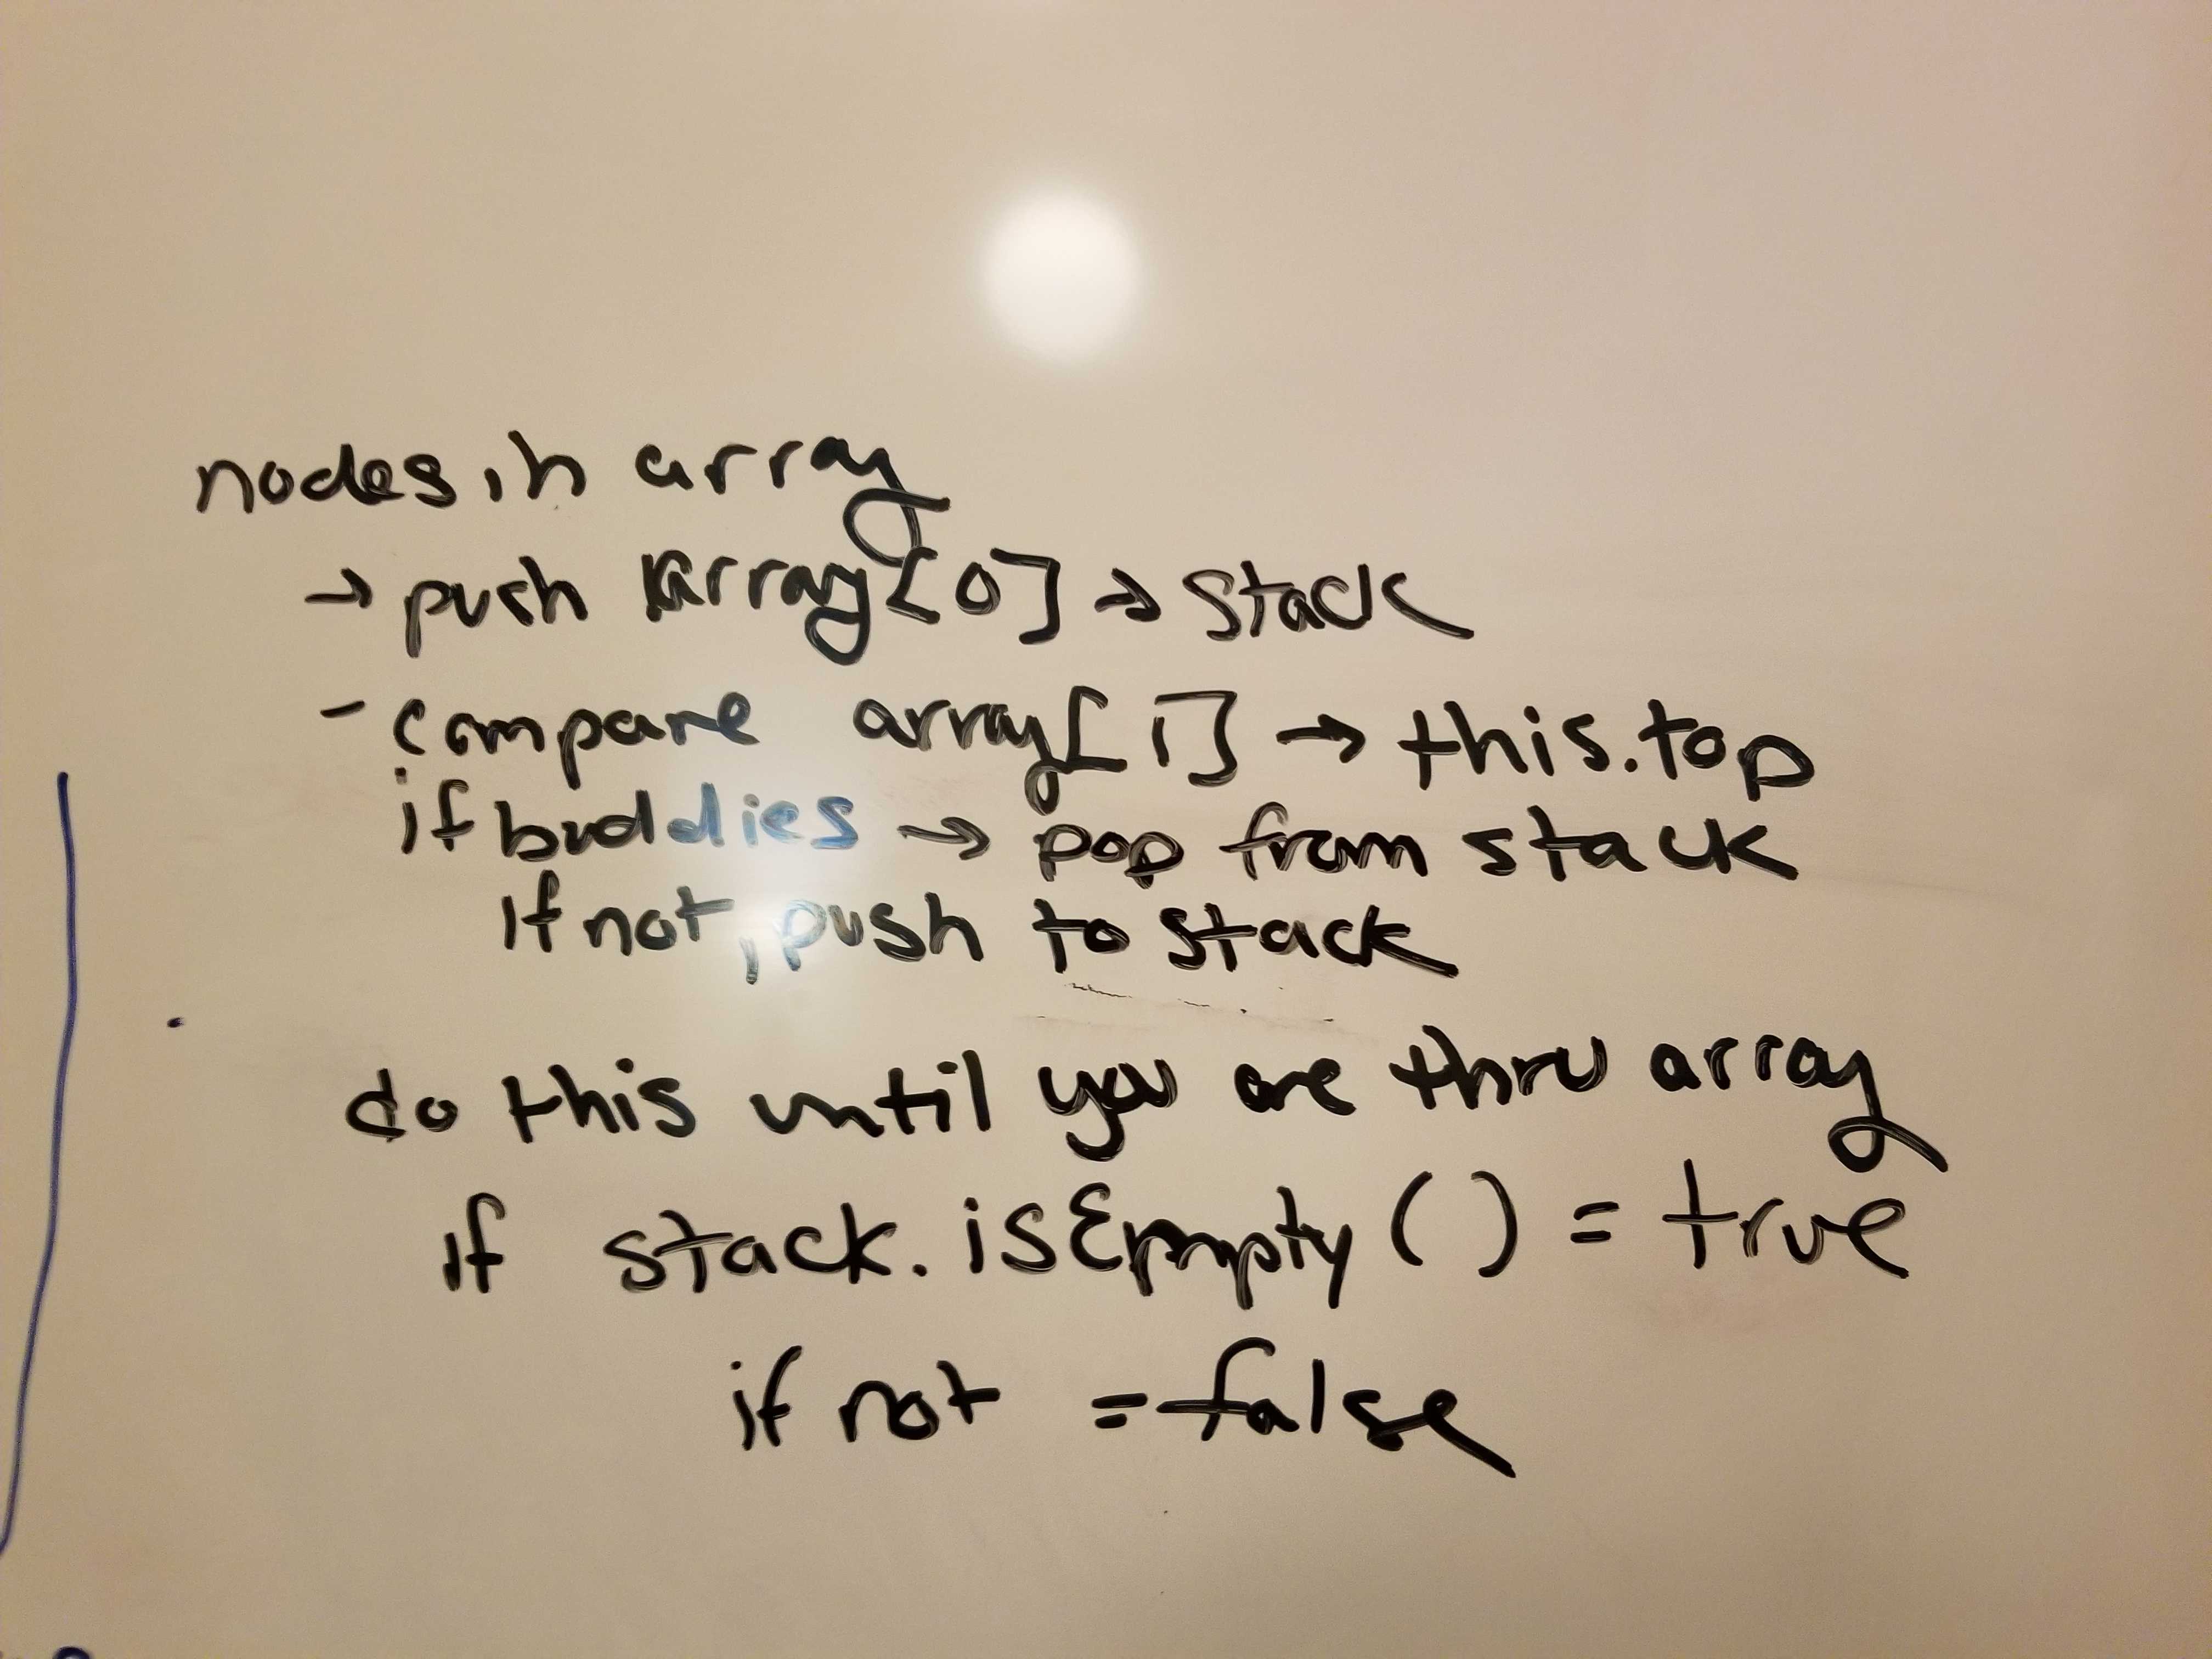 nodes in array
→ push array[0] → stack
- compare array[1] → this.top
if buddies → pop from stack
if not, push to stack
do this until you are thru array
if stack.isEmpty() = true
if not = false